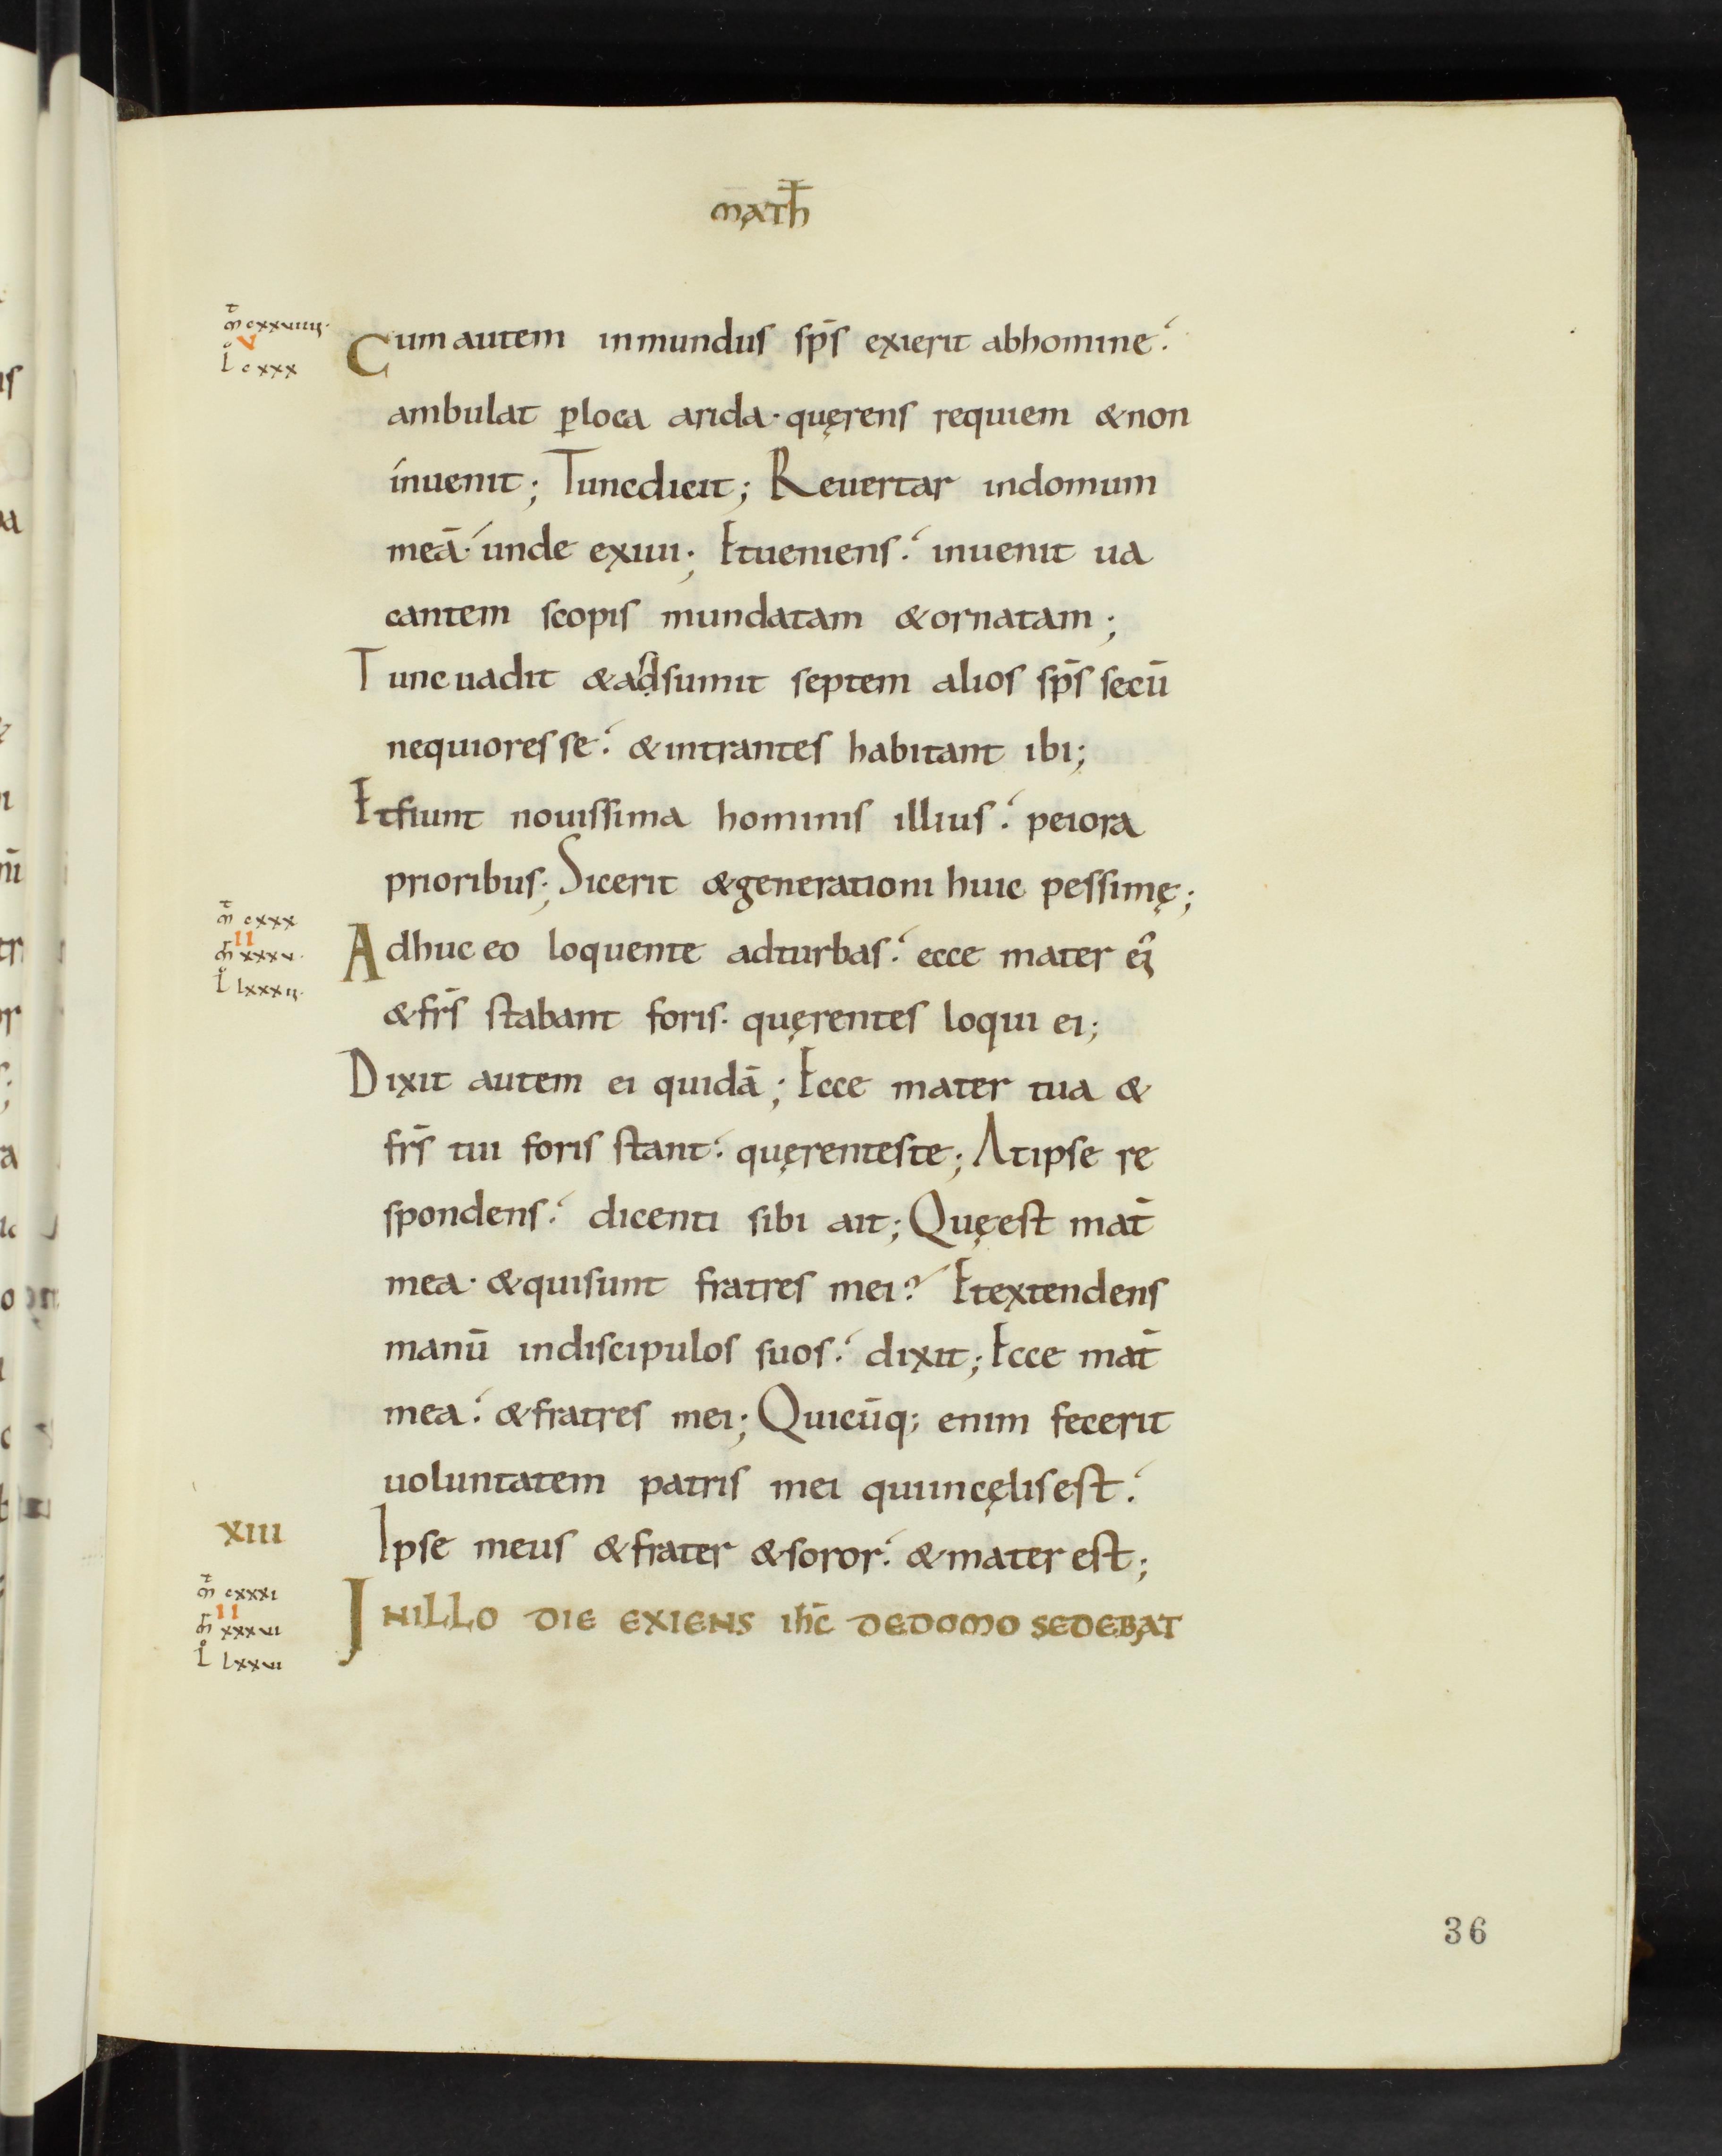 math̄
m̄ cxxviiii
V
L cxxx
Cum autem inmundus sp̄s exierit abhomine.
ambulat ꝑloca arida· quęrens requiem &non
inuenit; Tuncdicit; Reuertar indomum
meā· unde exiui; Etueniens. inuenit ua
cantem scopis mundatam &ornatam;
Tunc uadit &adsumit septem alios sp̄s secū
nequiores se. &intrantes habitant ibi;
Etfiunt nouissima hominis illius. peiora
prioribus; Sicerit &generationi huic pessimę;
m̄ cxxx
II
m̄ xxxv
L lxxxii
Adhuc eo loquente adturbas. ecce mater ei᾿
&fr̄s stabant foris· quęrentes loqui ei;
Dixit autem ei quidā; Ecce mater tua &
fr̄s tui foris stant. quęrenteste; Atipse re
spondens. dicenti sibi ait; Quęest mat̄
mea· &quisunt fratres mei? Etextendens
manū indiscipulos suos. dixit; Ecce mat̄
mea. &fratres mei; Quicūq; enim fecerit
uoluntatem patris mei quiincęlisest.
XIII
Ipse meus &frater &soror. &mater est;
m̄ cxxxi
II
m̄ xxxvi
L lxxvi
INILLO DIE EXIENS ih̄c DEDOMO SEDEBAT
36